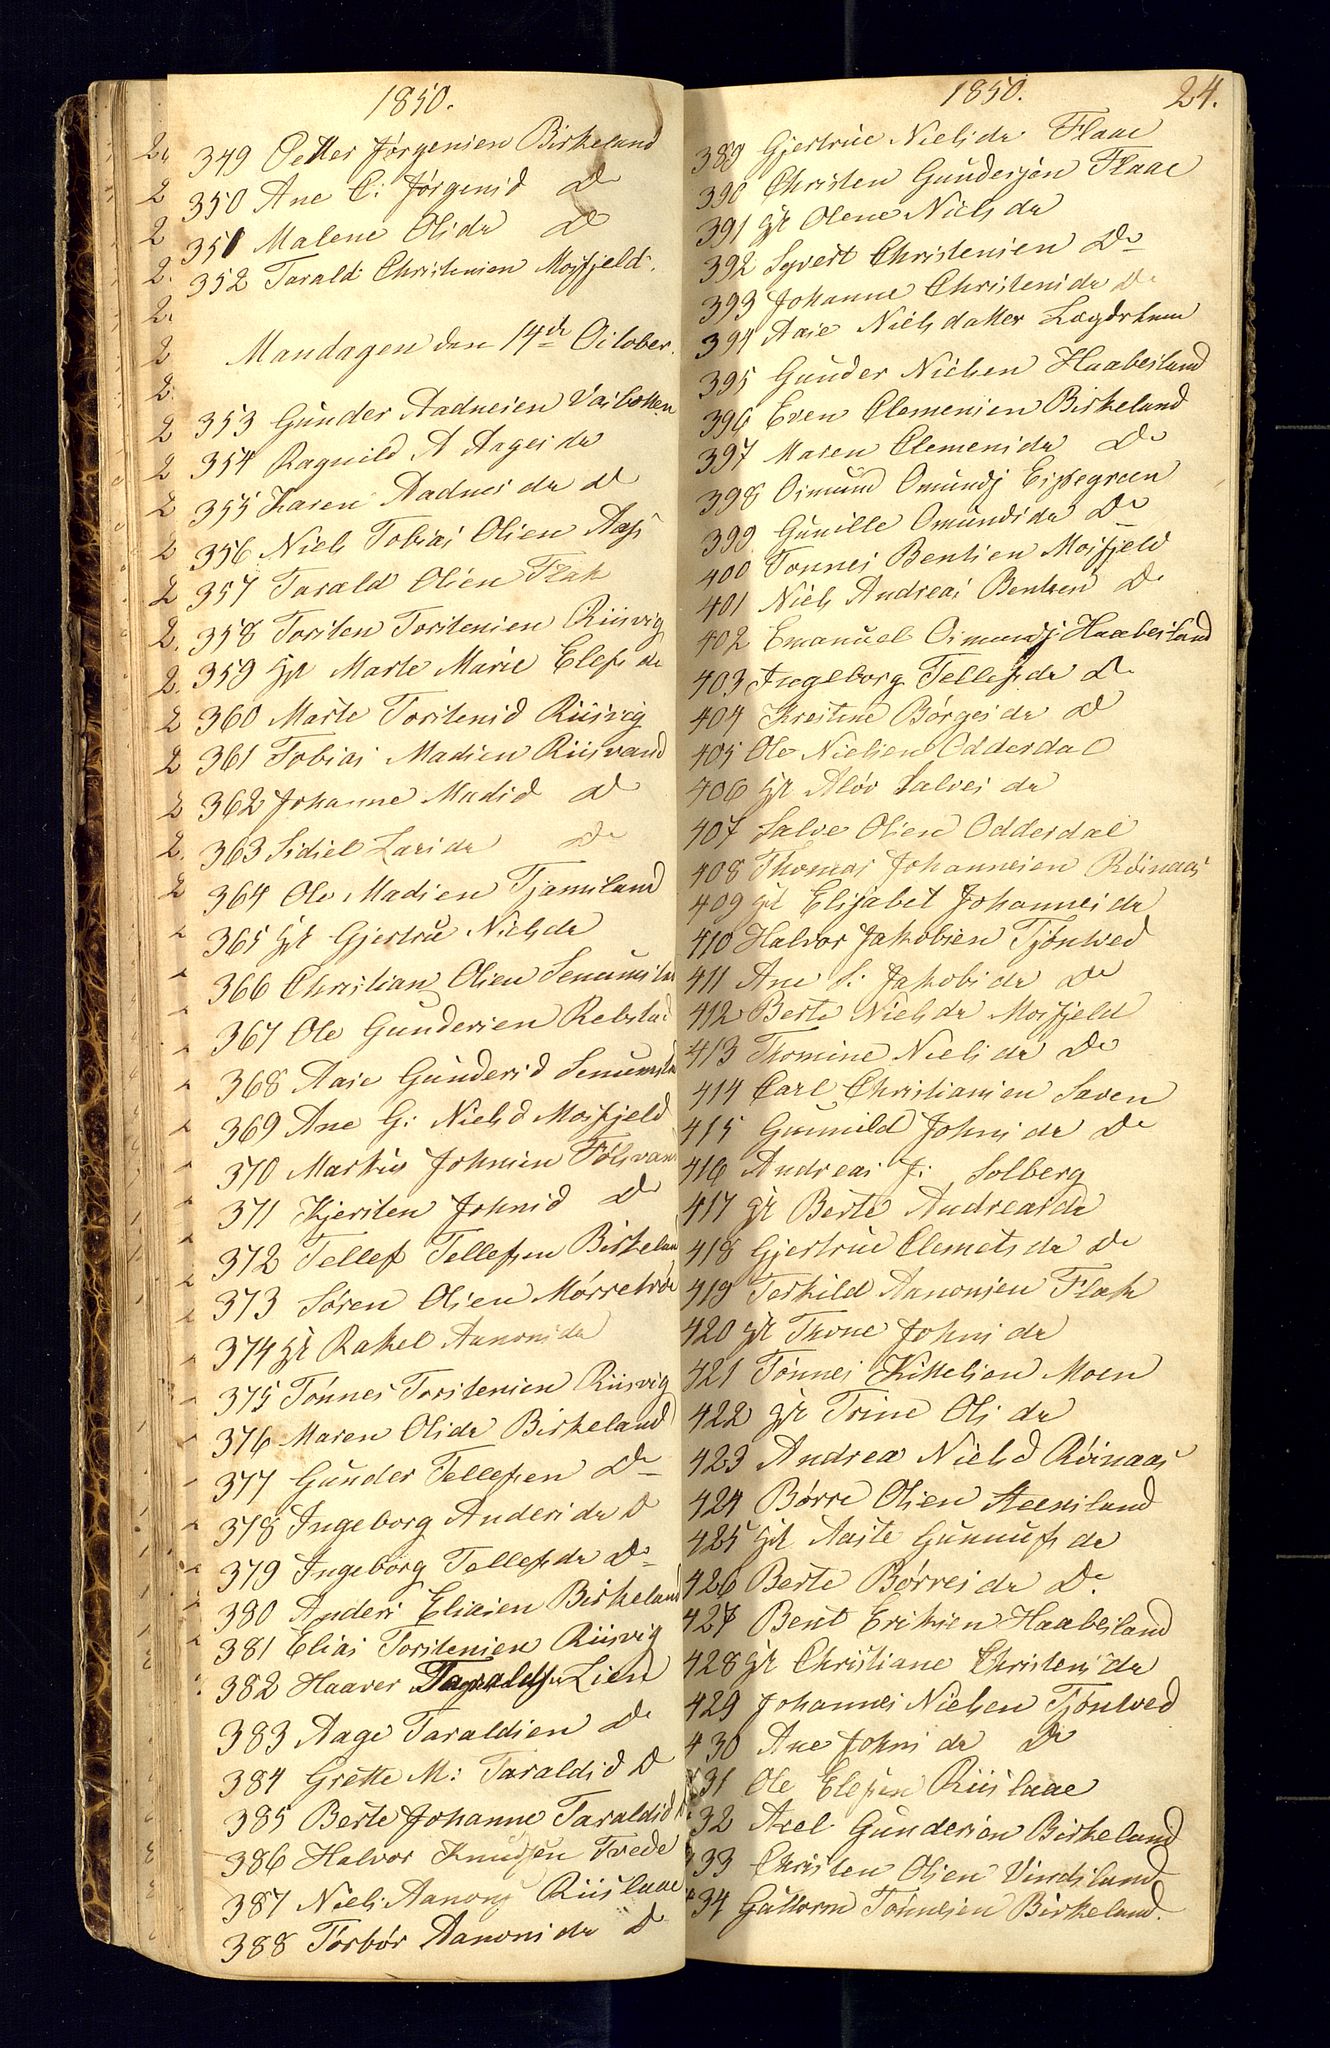 1850.
349 Petter Jørgensen Birkeland
350 Ane C: Jørgensd Do
351 Malene Olsdr Do
352 Tarald Christensen Mosfjeld.
Mandagen den 14de October.
353 Gunder Aadnesen Vasbotten
354 Ragnild A Aagesdr
355 Karen Aadnesdr Do
356 Niels Tobias Olsen Aas
357 Tarald Olsen Flak
358 Torsten Torstensen Riisvig
359 gt Marte Marie Elefsdr
360 Marte Torstensd Riisvig
361 Tobias Madsen Riisvand
362 Johanne Madsd Do
363 Sidsel Larsdr Do
364 Ole Madsen Tjamsland
365 gt Gjertru Nielsdr
366 Christian Olsen
367 Ole Gundersen Rebstad
368 Aase Gundersd
369 Ane G: Nielsd Mosfjeld
370 Markus Johnsen
371 Kjersten Johnsd Do
372 Tellef Tellefsen Birkeland
373 Søren Olsen
374 gt Rakel Aanonsdr
375 Tønnes Torstensen Riisvig
376 Maren Olsdr Birkeland
377 Gunder Tellefsen Do
378 Ingeborg Andersdr Do
379 Ingeborg Tellefsdr Do
380 Anders Eliasen Birkeland
381 Elias Torstensen Riisvig
382 Haaver Taraldsen Lien
383 Aage Taraldsen Do
384 Grette M: Taraldsd Do
385 Berte Johanne Taraldsd Do
386 Halvor Knudsen Tvede
387 Niels Aanons Riislaae
388 Torbør Aanonsdr Do
1850. 24.
389 Gjertrue Nielsdr Flaae
390 Christen Gundersøn Flaae
391 gt Olene Nielsdr
392 Syvert Christensen Do
393 Johanne Christensdr Do
394 Aase Nielsdatter
395 Gunder Nielsen Haabesland
396 Even Clemensen Birkeland
397 Maren Clemensdr Do
398 Osmund Omunds
399 Gunille Omundsdr Do
400 Tønnes Bentsen Mosfjeld
401 Niels Andreas Bentsen Do
402 Emanuel Osmunds Haabesland
403 Ingeborg Tellefsdr Do
404 Krestine Børgesdr Do
405 Ole Nielsen Odderdal
406 gt Aløv Salvesdr
407 Salve Olsen Odderdal
408 Thomas Johannesen Røinaas
409 gt Elisabet Johannesdr
410 Halvor Jakobsen Tjønwed
411 Ane S: Jakobsdr Do
412 Berte Nielsdr Mosfjeld
413 Thomine Nielsdr Do
414 Carl Christiansen Saven
415 Gunnild Johnsdr Do
416 Andreas J: Solberg
417 gt Berte Andreasdr
418 Gjertrue Clemetsdr Do
419 Terkild Aanonsen Flak
420 gt Thone Johnsdr
421 Tønnes Kittelsen Moen
422 gt Trine Olsdr
423 Andrea Nielsd Røinaas
424 Børre Olsen
425 gt Aaste Gunnufsdr
426 Berte Børresdr Do.
427 Bent Eriksen Haabesland
428 gt Christiane Christensdr
429 Johannes Nielsen Tjønwed
430 Ane Johnsdr Do
431 Ole Elefsen Riislaae
432 Axel Gundersen Birkeland
433 Christen Olsen Vindsland
434 Guttorm Tønnesen Birkeland.